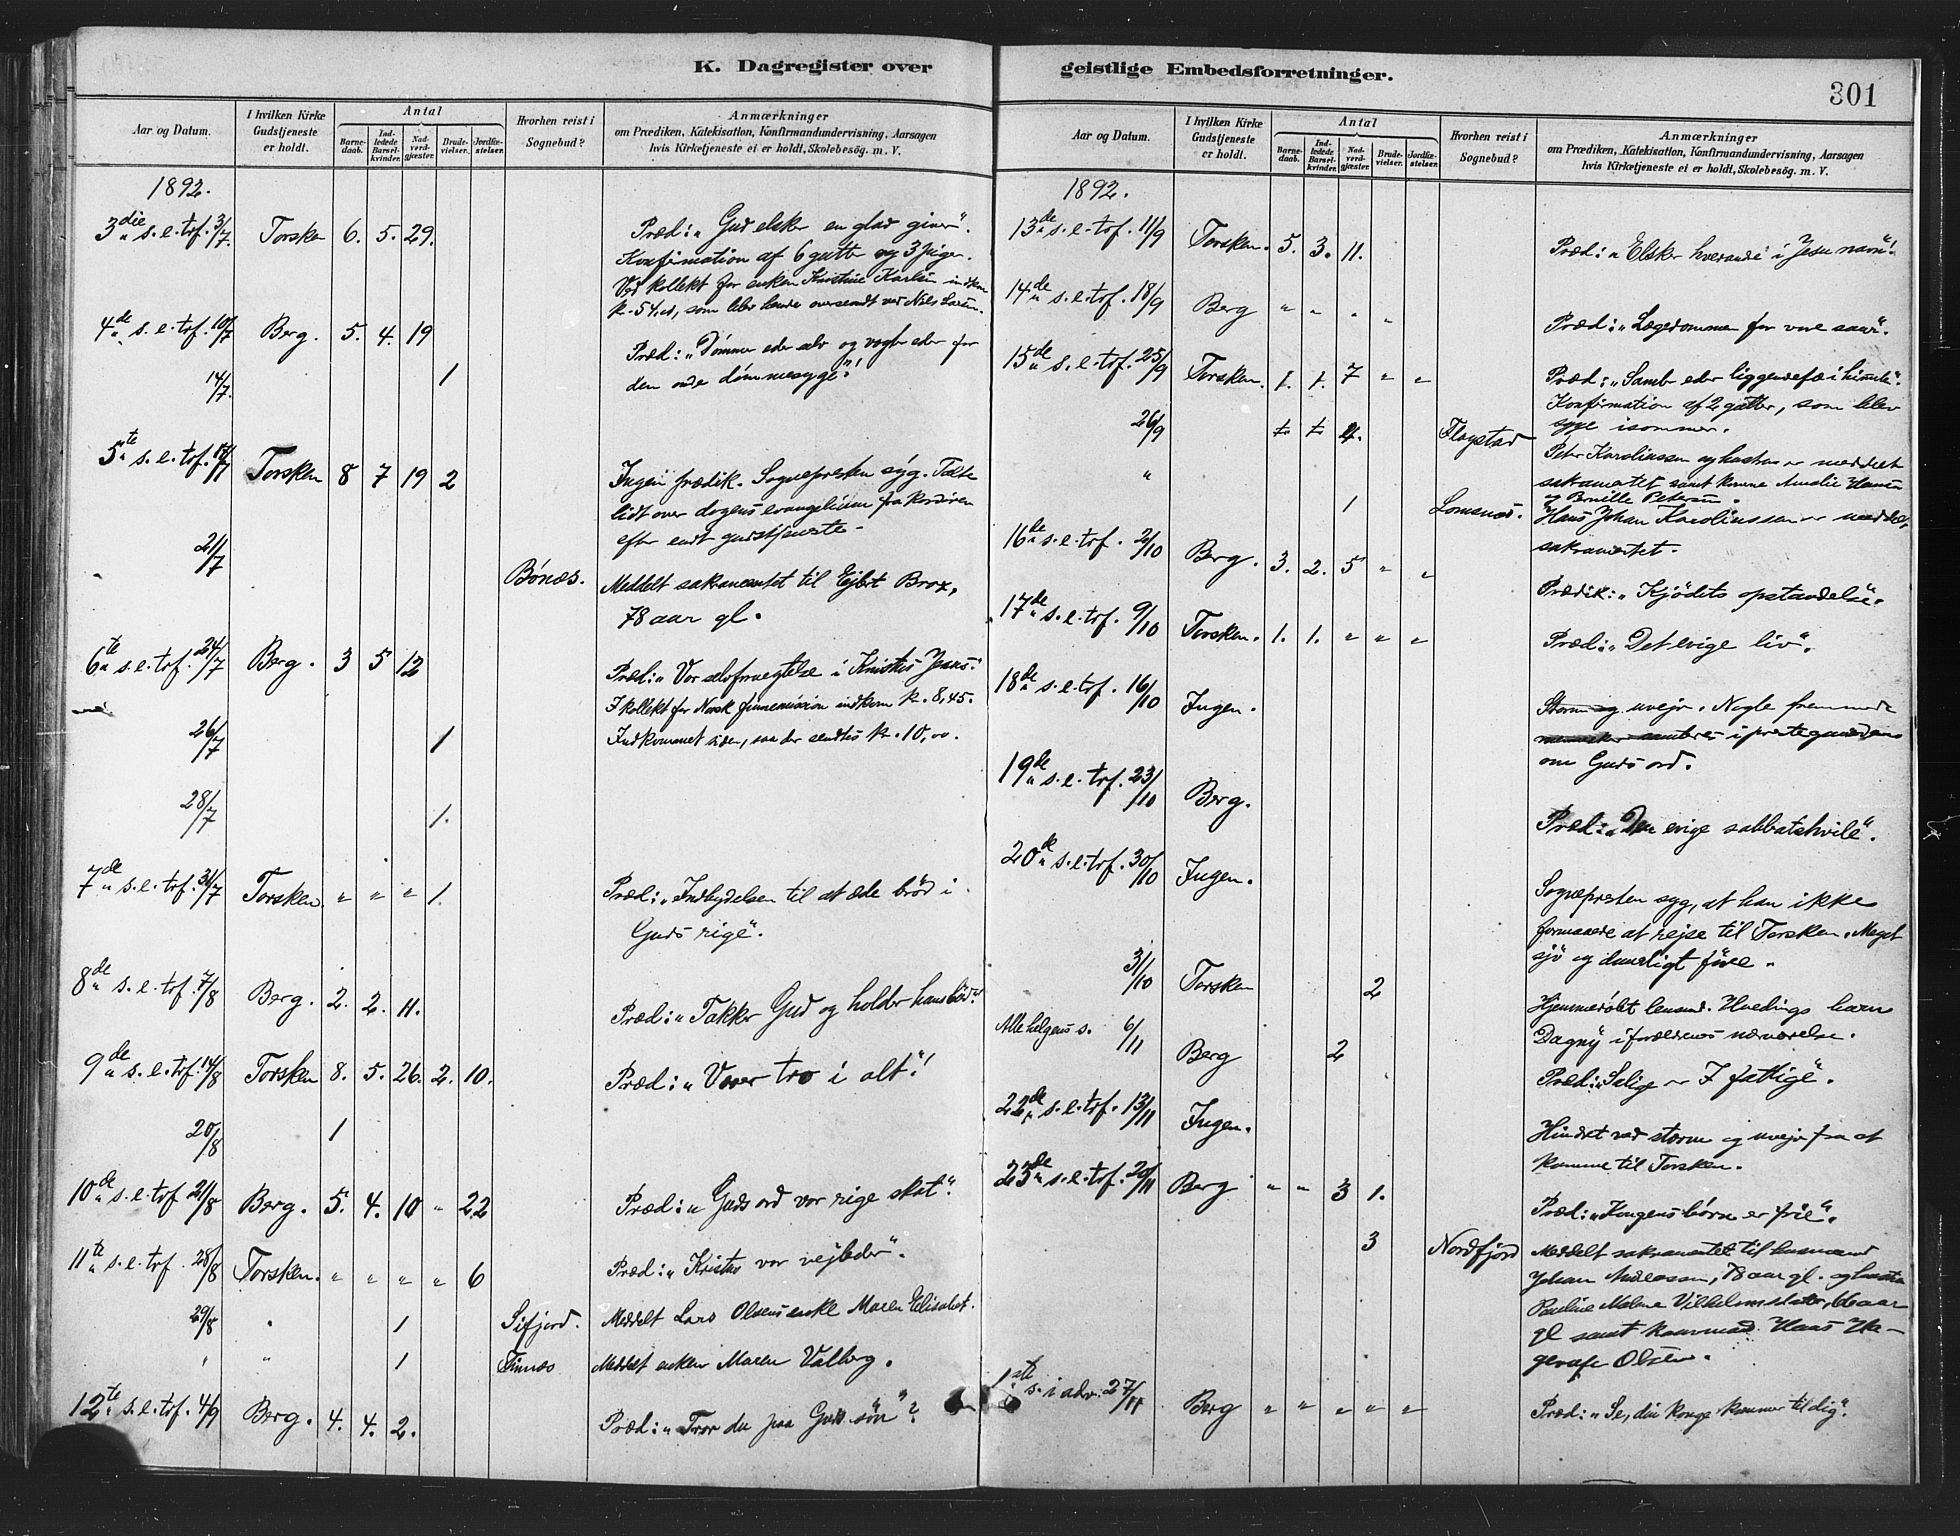 K. Dagregister over
Aar og Datum.
I hvilken Kirke Gudstjeneste er holdt.
Antal
Barnedaab.
Indledede Barselkvinder.
Nadverdgjæster.
Brudevielser.
Jordfæstelser.
Hvorhen reist i Sognebud?
Anmærkninger
om Prædiken, Katekisation, Konfirmandundervisning, Aarsagen
hvis Kirketjeneste ei er holdt, Skolebesög. m. V.
1892.
3die s. e. trf. 3/7. Torsken 6. 5. 29. Præd: „Gud elsker en glad giver“.
Konfirmation af 6 gutter og 3 piger.
Ved kollekt for enken Kristine Karlsen indkom
som blev hende oversendt ved Nils Larsen.
4de s. e. trf. 10/7 Berg. 5. 4. 19 Præd: „Dømmer eder selv og vogter eder for
14/7. 1 den onde dømmesyge“!
5te s. e. trf. 17/7 Torsken 8 7 19 2 Ingen prædik. Sognepresten syg. Talte
lidt over dagens evangelium fra kordøren
efter endt gudstjeneste.
21/7 Bónæs. Meddelt sakramentet til Ejlert Brox,
78 aar gl.
6te s. e. trf. 24/7 Berg. 3 5 12 Præd: „Vor selvfornegtelse i Kristus Jesus“.
I kollekt for Norsk finnemission indkom kr. 8,45.
26/7 1 Indkommet siden, saa der sendtes kr. 10,00.
28/7 1.
7de s. e. trf. 31/7 Torsken „ „ „ 1. Præd: „Indbydelsen til at æde bröd i
Guds rige“.
8de s. e. trf. 7/8 Berg. 2. 2. 11. Præd: „Takker Gud og holder hans bud“.
9de s. e. trf. 14/8 Torsken 8. 5. 26. 2. 10. Præd: „Værer tro i alt“!
20/8 1
10de s. e. trf 21/8 Berg. 5. 4. 10 „ 22 Præd: „Guds ord vor rige skat“.
11te s. e. trf. 28/8 Torsken. „ „ „ „ 6 Præd: „Kristus vor vejleder“.
29/8 „ 1 Sifjord. Meddelt Lars Olsens enke Maren Elisabet.
„ „ 1 Finnæs Meddelt enken Maren Valberg.
12te s. e. trf. 4/9 Berg. 4. 4. 2. Præd: „Tror du paa Guds sön“?
geistlige Embedsforretninger.
301
Aar og Datum.
I hvilken Kirke Gudstjeneste er holdt.
Antal
Barnedaab.
Indledede Barselkvinder.
Nadverdgjæster.
Brudevielser.
Jordfæstelser.
Hvorhen reist i Sognebud?
Anmærkninger
om Prædiken, Katekisation, Konfirmandundervisning, Aarsagen
hvis Kirketjeneste ei er holdt, Skolebesög. m. V.
1892.
13de s. e. trf. 11/9 Torsken. 5. 3. 11. Præd: „Elsker hverandre i Jesu navn“!
14de s. e. trf. 18/9 Berg „ „ „ „ Præd: „Lægedommen for vore saar“.
15de s. e. trf. 25/9 Torsken. 1. 1. 7 „ „ Præd: „Samler eder liggendefæ i himlen“.
Konfirmation af 2 gutter, som blev
syge isommer.
26/9 4. Flagstad Peter Karoliussen og hustru er meddelt
sakramentet samt konene Amalie Hansen
og Pernille Petersen.
„ 1 Lomsnes. Hans Johan Karoliussen er meddelt
sakramentet.
16de s. e. trf. 2/10 Berg. 3. 2. 5 „ „ Prædik: „Kjödets opstandelse“.
17de s. e. trf. 9/10 Torsken. 1. 1. „ „ „ Præd: „Det evige liv“.
18de s. e. trf. 16/10 Ingen. Storm og uvejr. Nogle fremmede
mennesker samledes i prestegaarden
om Guds ord.
19de s. e. trf. 23/10 Berg. Præd: „Den evige sabbatshvile“.
20de s. e. trf. 30/10 Ingen. Sognepresten syg, at han ikke
formaaede at rejse til Torsken. Meget
sjö og daarligt före.
31/10 Torsken 2 Hjemmedöbt lensmd. Hvedings barn
„Dagny“ i forældrenes nærværelse.
Alle helgens s. 6/11 Berg 2 Præd: „Salige er I fattige“.
22de s. e. trf. 13/11 Ingen. Hindret ved storm og uvejr fra at
komme til Torsken.
23de s. e. trf. 20/11 Berg „ „ 3 1. Præd: „Kongens börn er frie“.
3 Nordfjord Meddelt sakramentet til husmand
Johan Andreassen, 78 aar gl. og hustru
Pauline Malene Vilhelmsdatter, aar
gl samt Hans Ha-
gerafe Olsen.
1ste s. i adv. 27/11 Berg „ „ „ „ „ Præd: „Se, din konge kommer til dig“.